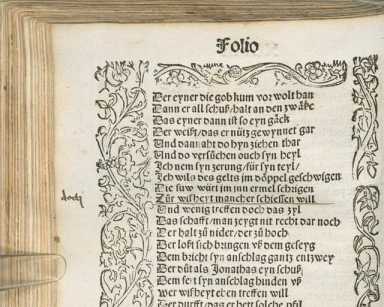 Folio
Der eyner die gob kum vor wolt han
Dann er all schuß/halt an den zwäck
Das eyner dann ist so eyn gäck
Der weißt/das er nütz gewynnet gar
Und dannaht do hyn ziehen thar
Und do versůchen ouch syn heyl
Ich nem syn zerung/für syn teyl/
Ich wils des gelts im döppel geschwigen
Die suw würt im jnn ermel schrigen
Zůr wißheyt mancher schiessen will
Und wenig treffen doch das zyl
doch
Das schafft/man zeygt nit recht dar noch
Der halt zů nider/der zů hoch
Der loßt sich bringen vß dem geseyg
Dem bricht syn anschlag gantz entzwey
Der důt als Jonathas eyn schuß
Dem syn anschlag hinden vß
Wer wißheyt eben treffen will
Der durfft/das er hett solche pfil